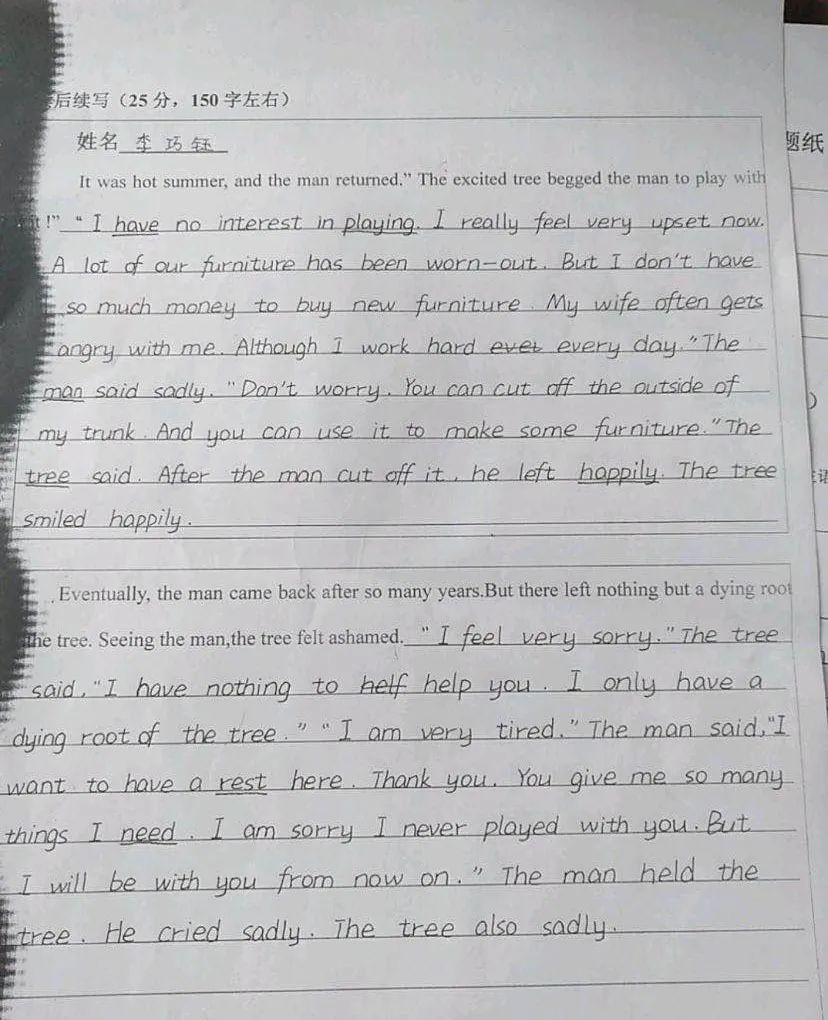 后续写（25 分，150 字左右）
姓名 李 巧 钰
题纸
It was hot summer, and the man returned.” The excited tree begged the man to play with
it !” “ I have no interest in playing. I really feel very upset now.
A lot of our furniture has been worn-out. But I don't have
so much money to buy new furniture. My wife often gets
angry with me. Although I work hard evet every day.” The
man said sadly. “Don't worry. You can cut off the outside of
my trunk. And you can use it to make some furniture.” The
tree said. After the man cut off it, he left happily. The tree
smiled happily.
Eventually, the man came back after so many years.But there left nothing but a dying root
the tree. Seeing the man,the tree felt ashamed. “ I feel very sorry.” The tree
said, “I have nothing to helf help you. I only have a
dying root of the tree.” “ I am very tired.” The man said, “I
want to have a rest here. Thank you. You give me so many
things I need. I am sorry I never played with you. But
I will be with you from now on.” The man held the
tree. He cried sadly. The tree also sadly.